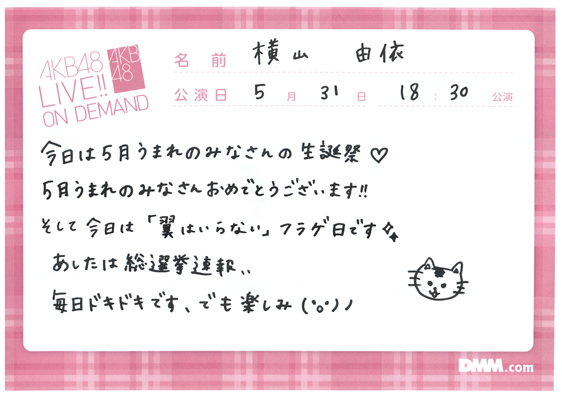 AKB48
LIVE!!
ON DEMAND
AKB
48
名前 横山 由依
公演日 5月31日 18:30 公演
今日は5月うまれのみなさんの生誕祭♡
5月うまれのみなさんおめでとうございます!!
そして今日は「翼はいらない」フラゲ日です
あしたは総選挙速報、、
毎日ドキドキです、でも楽しみ(°o°)ノ
DMM.com